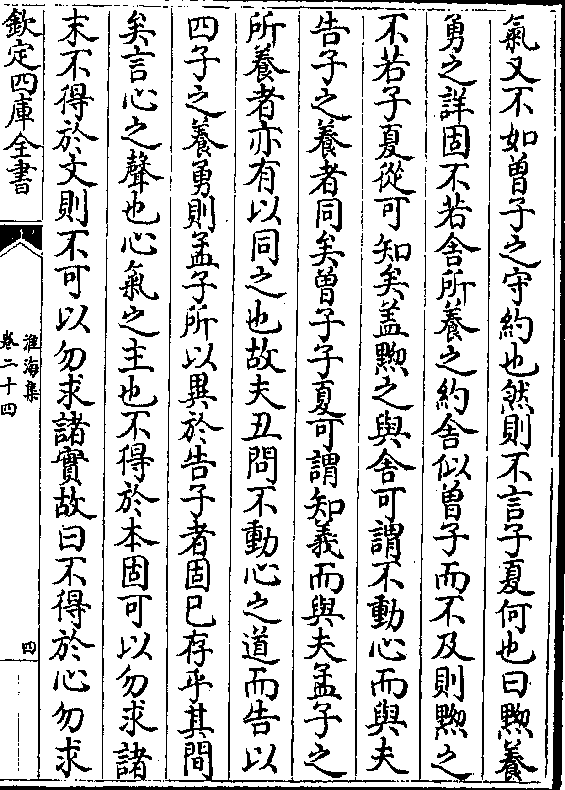 氣又不如曽子之守約也然則不言子夏何也曰黝養
勇之詳固不若舍所養之約舍似曽子而不及則黝之
不若子夏從可知矣盖黝之與舍可謂不動心而與夫
告子之養者同矣曽子子夏可謂知義而與夫孟子之
所養者亦有以同之也故夫丑問不動心之道而告以
四子之養勇則孟子所以異於告子者固已存乎其間
矣言心之聲也心氣之主也不得於本固可以勿求諸
末不得於文則不可以勿求諸實故曰不得於心勿求
欽定四庫全書
淮海集
卷二十四
四